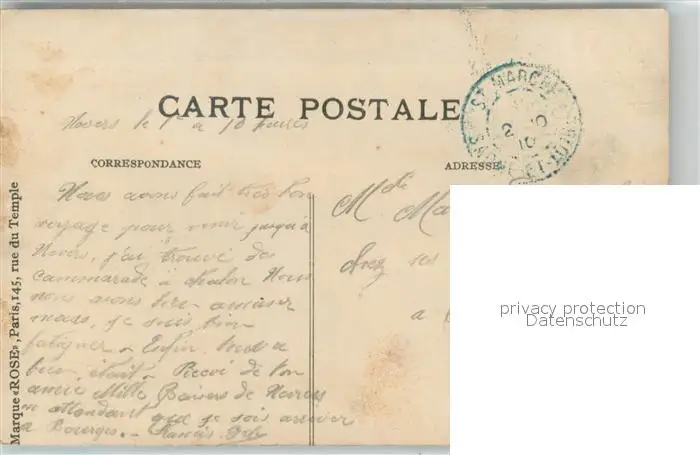 CARTE POSTALE
Nevers le 1er à 10 heures
CORRESPONDANCE
ADRESSE
Nous avons fait très bon
voyage pour venir jusqu'à
Nevers, j'ai trouvé des
cammarade à chalon Nous
nous avons bien amuser
mais, je suis bien
fatiguer. Enfin tout a
bien était. Recoi de ton
amie Mille Baisers de Nevers
en attendant que je sois arriver
a Bourges. Francis
Mlle Ma
chez ses
a
Marque «ROSE», Paris, 145, rue du Temple
ST MARC
10
privacy protection
Datenschutz